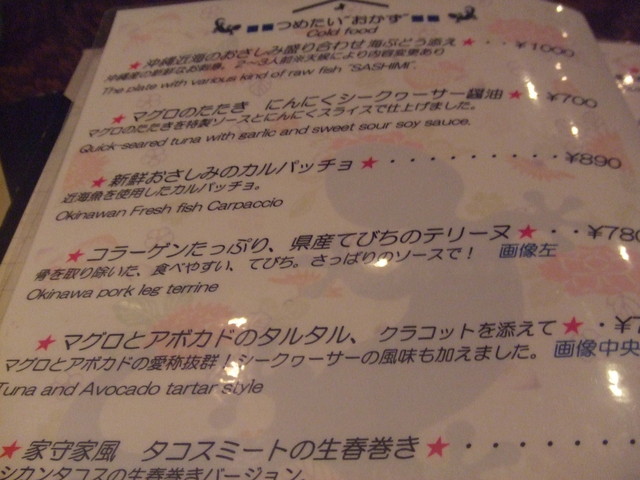 つめたい"おかず"
Cold food
★沖縄近海のおさしみ盛り合わせ 海ぶどう添え★・・¥1000
沖縄産の新鮮なお刺身。2〜3人前※天候により内容変更あり
The plate with various kind of raw fish "SASHIMI".
★マグロのたたき にんにくシークヮーサー醤油★ ¥700
マグロのたたきを特製ソースとにんにくスライスで仕上げました。
Quick-seared tuna with garlic and sweet sour soy sauce.
★新鮮おさしみのカルパッチョ★・・・・・・・・・・¥890
近海魚を使用したカルパッチョ。
Okinawan Fresh fish Carpaccio
★コラーゲンたっぷり、県産てびちのテリーヌ★・・¥780
骨を取り除いた、食べやすい、てびち。さっぱりのソースで! 画像左
Okinawa pork leg terrine
★マグロとアボカドのタルタル、クラコットを添えて★・¥
マグロとアボカドの愛称抜群!シークヮーサーの風味も加えました。 画像中央
Tuna and Avocado tartar style
★家守家風 タコスミートの生春巻き★・・・・・・・
シカンタコスの生春巻きバージョン。